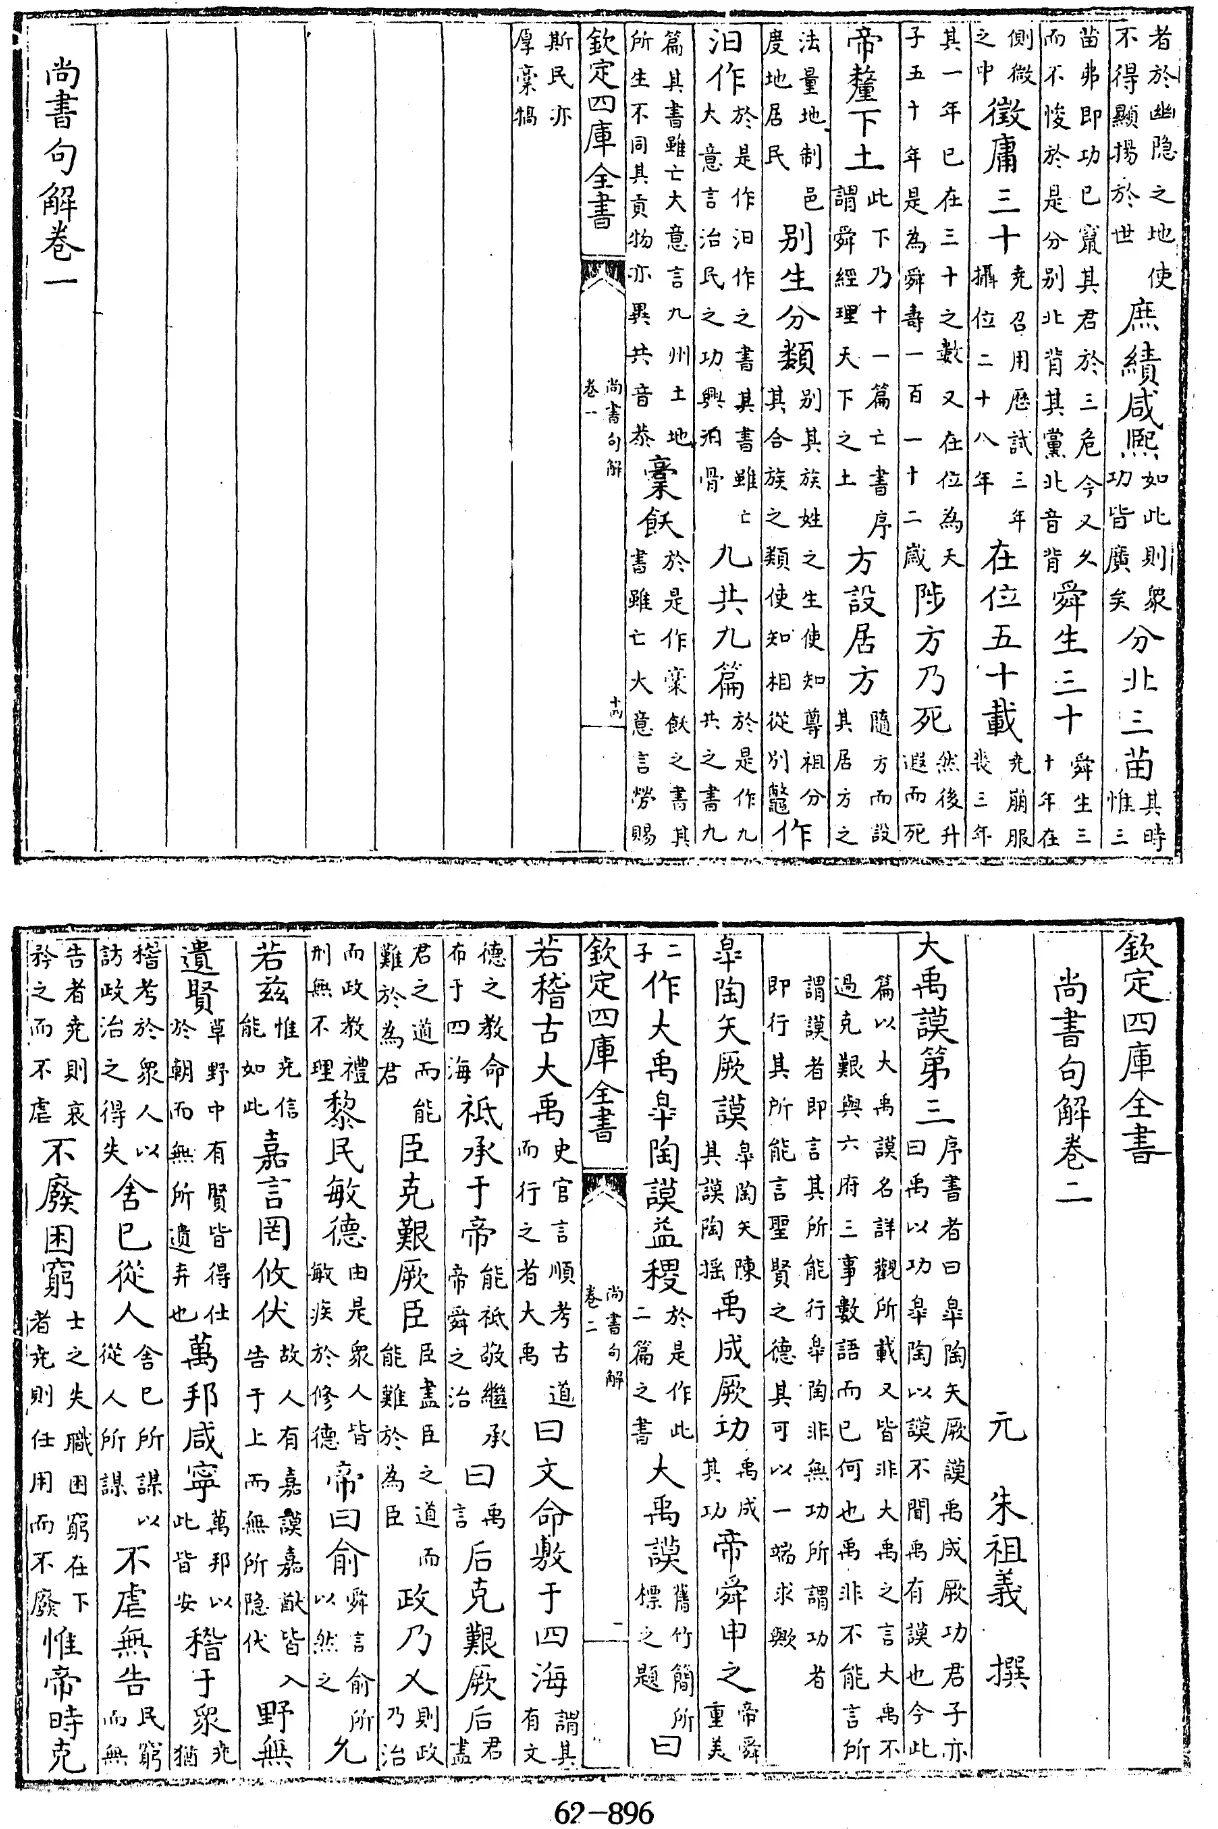 者於幽隐之地使不得顯揚於世庶績咸熙如此則衆功皆廣矣分北三苗其時惟三
苗弗即功已竄其君於三危今又久而不悛於是分别北背其黨北音背舜生三十舜生三十年在
側微之中徵庸三十堯召用歷試三年攝位二十八年在位五十載堯崩服喪三年
其一年已在三十之數又在位為天子五十年是為舜壽一百一十二歲陟方乃死然後升遐而死
帝釐下土此下乃十一篇亡書序謂舜經理天下之土方設居方隨方而設其居方之
法量地制邑度地居民别生分類别其族姓之生使知尊祖分其合族之類使知相從别鼈作
汩作於是作汩作之書其書雖亡大意言治民之功興汩骨九共九篇於是作九共之書九
篇其書雖亡大意言九州土地所生不同其貢物亦異共音恭槀飫於是作槀飫之書其書雖亡大意言勞賜
欽定四庫全書 尚書句解卷一 十四
斯民亦厚槀犒
尚書句解卷一
欽定四庫全書
尚書句解卷二
元 朱祖義 撰
大禹謨第三序書者曰皐陶矢厥謨禹成厥功君子亦曰禹以功皐陶以謨不聞禹有謨也今此
篇以大禹謨名詳觀所載又皆非大禹之言大禹不過克艱與六府三事數語而已何也禹非不能言所
謂謨者即言其所能行皐陶非無功所謂功者即行其所能言聖賢之德其可以一端求歟
皐陶矢厥謨皐陶矢陳其謨陶摇禹成厥功禹成其功帝舜申之帝舜重美
二子作大禹皐陶謨益稷於是作此二篇之書大禹謨舊竹簡所標之題曰
欽定四庫全書 尚書句解卷二 一
若稽古大禹史官言順考古道而行之者大禹曰文命敷于四海謂其有文
德之教命布于四海祗承于帝能祗敬繼承帝舜之治曰禹言后克艱厥后君盡
君之道而能難於為君臣克艱厥臣臣盡臣之道而能難於為臣政乃乂則政乃治
而政教禮刑無不理黎民敏德由是衆人皆敏疾於修德帝曰俞舜言俞所以然之允
若兹惟堯信能如此嘉言罔攸伏故人有嘉謨嘉猷皆入告于上而無所隐伏野無
遺賢草野中有賢皆得仕於朝而無所遺弃也萬邦咸寧萬邦以此皆安稽于衆堯猶
稽考於衆人以訪政治之得失舍已從人舍已所謀以從人所謀不虐無告民窮而無
告者堯則哀矜之而不虐不廢困窮士之失職困窮在下者堯則任用而不廢惟帝時克
62-896